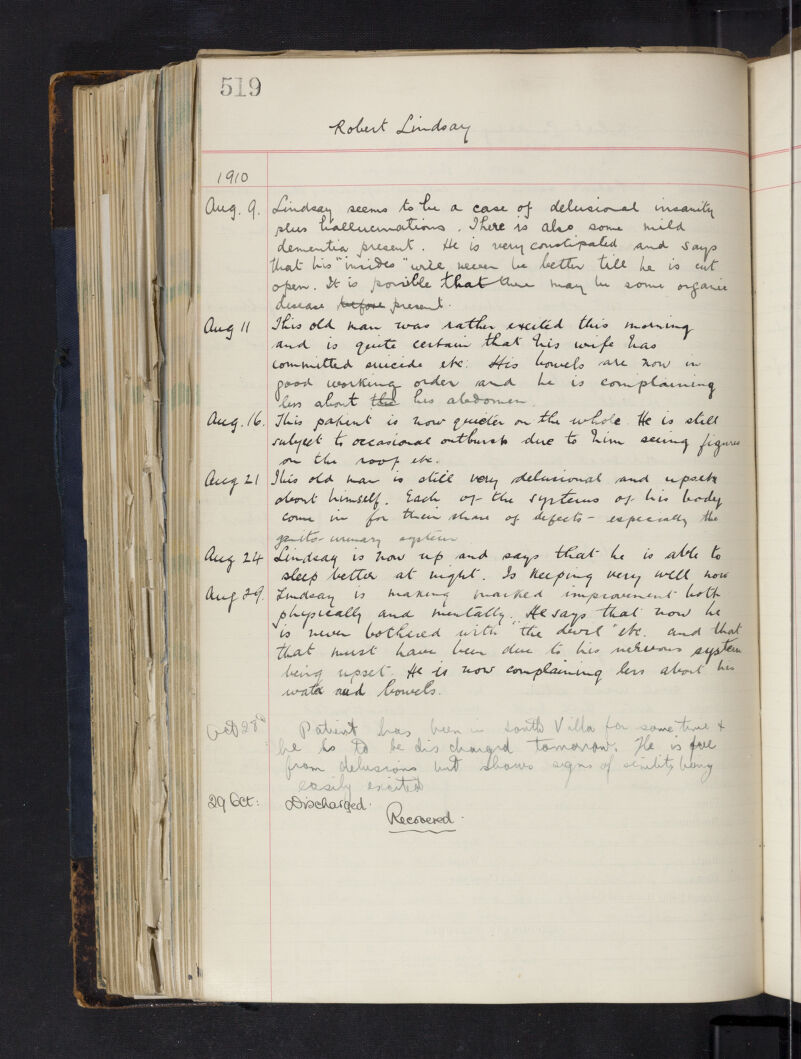 519
Robert Lindsay
1910
Aug. 9. Lindsay seems to be a case of delusional insanity
plus hallucinations. There is also some mild
dementia present. He is very constipated and says
that his "insides" will never be better till he is cut
open. It is possible that there may be some organic
disease before present.
Aug 11 This old man was rather excited this morning
and is quite certain that his wife has
committed suicide etc. His bowels are now in
good working order and he is complaining
less about the his abdomen.
Aug. 16. This patient is now quieter on the whole. He is still
subject to occasional outbursts due to him seeing figures
on the roof etc.
Aug 21 This old man is still very delusional and upset
about himself. Each of the systems of his body
come in for their share of defects - especially the
genito-urinary system
Aug 24 Lindsay is now up and says that he is able to
sleep better at night. Is keeping very well now
Aug 29. Lindsay is making marked improvement both
physically and mentally. He says that now he
is never bothered with "the devil" etc. and that
that must have been due to his nervous system
being upset. He is now complaining less about his
water and bowels.
Oct 28th Patient has been in South Villa for some time &
he is to be discharged tomorrow. He is free
from delusions but shows signs of senility being
easily excited
29 Oct: Discharged.
Recovered.